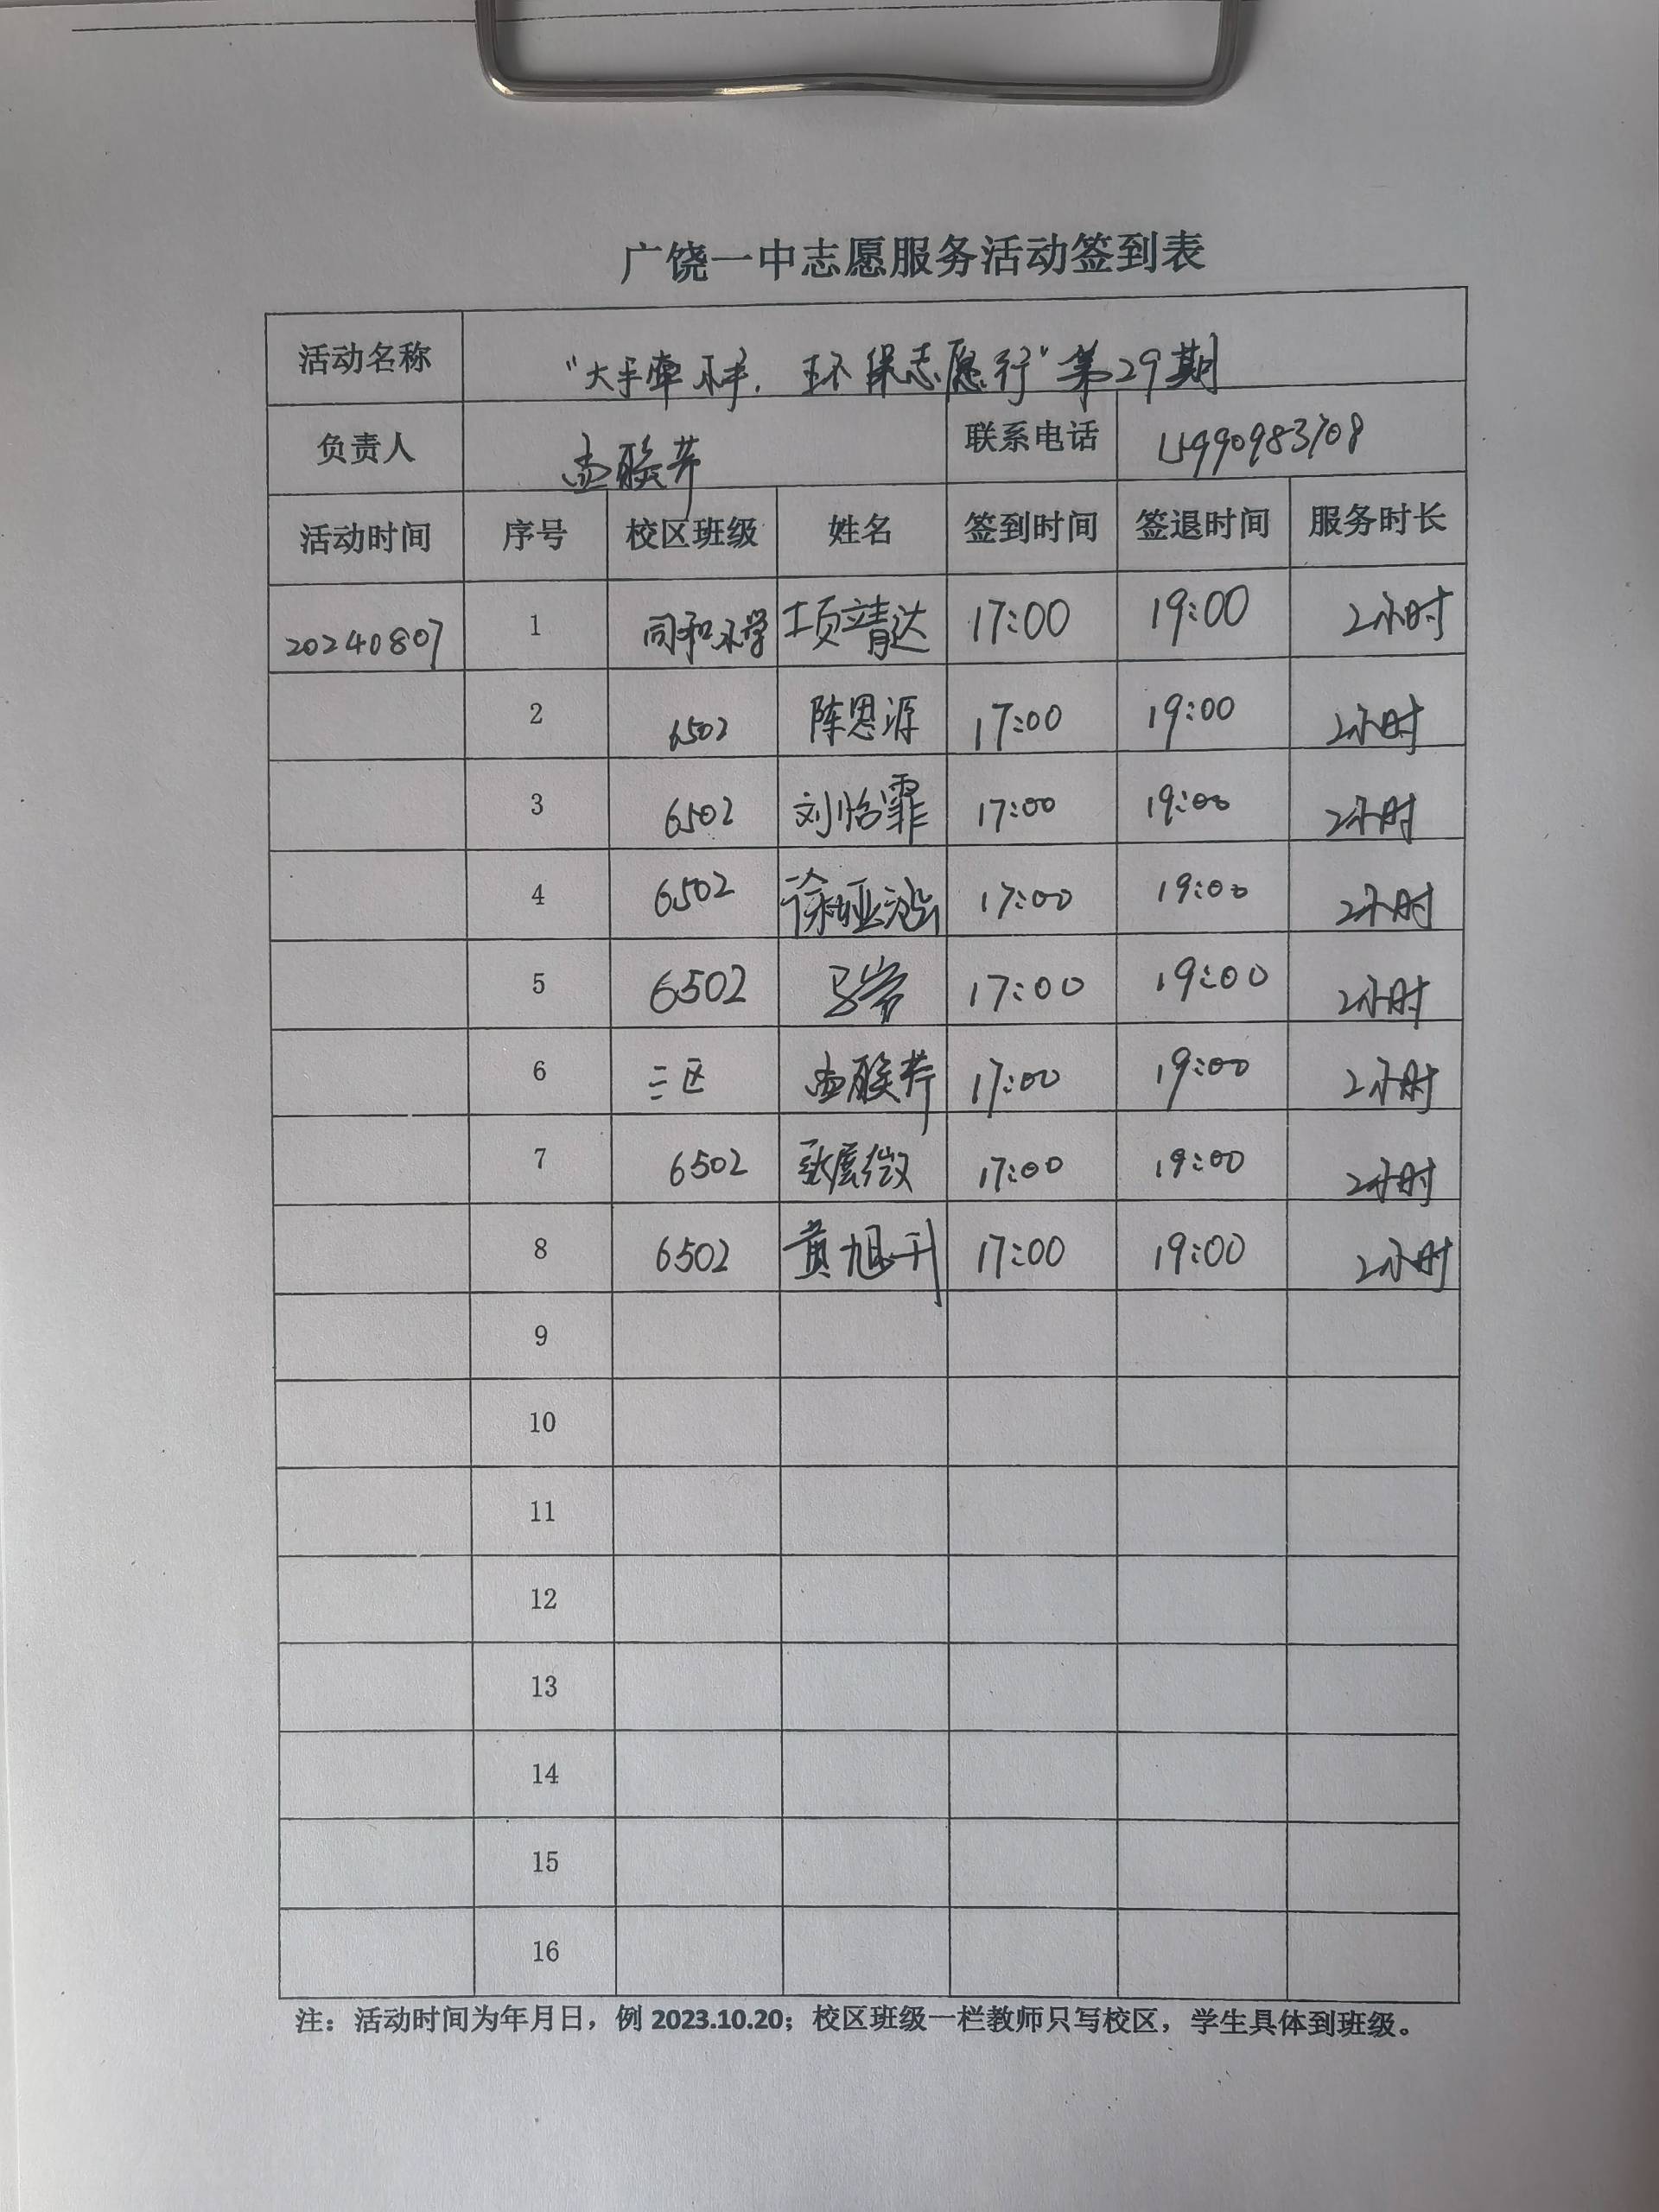 广饶一中志愿服务活动签到表
活动名称 “大手牵小手,环保志愿行”第29期
负责人 联系电话
活动时间 序号 校区班级 姓名 签到时间 签退时间 服务时长
20240807 1 同和小学 项靖达 17:00 19:00 2小时
2 6502 陈恩源 17:00 19:00 2小时
3 6502 刘怡霏 17:00 19:00 2小时
4 6502 17:00 19:00 2小时
5 6502 17:00 19:00 2小时
6 三区 17:00 19:00 2小时
7 6502 17:00 19:00 2小时
8 6502 黄旭升 17:00 19:00 2小时
9
10
11
12
13
14
15
16
注:活动时间为年月日,例 2023.10.20;校区班级一栏教师只写校区,学生具体到班级。